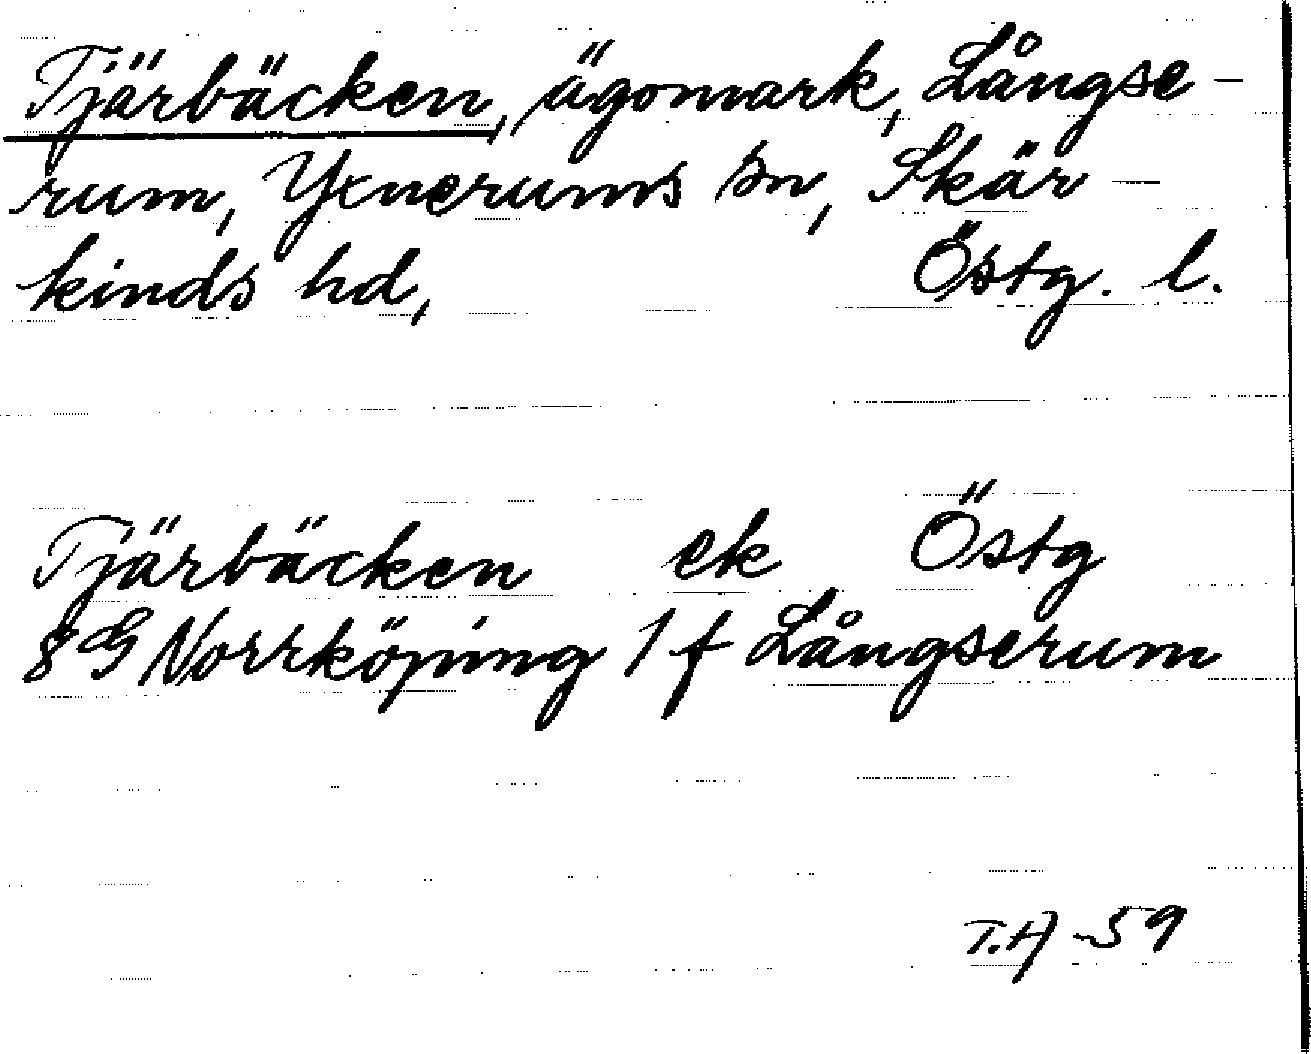 Tjärbäcken, ägomark, Långse-
rum, Yxnerums sn, Skär-
kinds hd, Östg. l.
Tjärbäcken ek Östg
8 G Norrköping 1 f Långserum
T.H -59